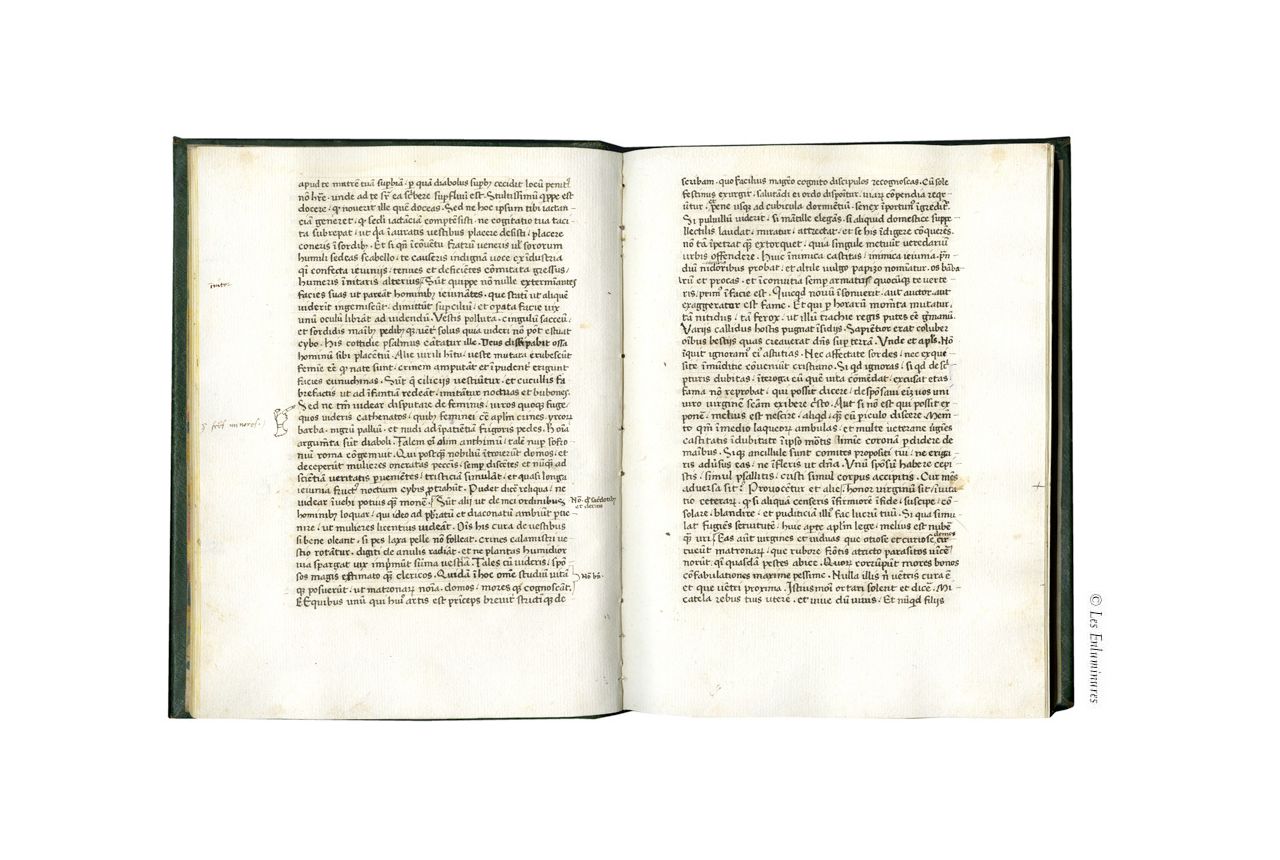 apud te matrē tuā supbiā · p quā diabolus supbꝰ cecidit locū penitꝰ
nō hr̄e · unde ad te sr̄ ea scͥbere supfluū est · Stultissimū q̄ppe est
docere · qͩ nouerit ille quē doceas · Sed ne hoc ipsum tibi iactan-
ciā generet · qͩ seci iactāciā comptēsisti · ne cogitatio tua taci
ta subrepat · ut qͣ i auratis vestibus placere desisti · placere
coneris i sordibꝫ · Et si qn̄ i cōuētu fratrū ueneris ul sororum
humili sedeas scabello · te causeris indignā uoce ex īdustria
qͣ confecta ieiunijs · tenues et deficiētes cōmutata gressus /
humeris īnitaris alterius · Sūt quippe nō nulle exterminātes
facies suas ut pareāt hominibꝫ ieiunātes · que statī ut aliquē
viderīt ingemiscūt · dimittūt supciliū · et opata facie uix
unū oculū librāt ad uidendū · Vestis polluta · cingulū sacceū ·
et sordidis maībꝫ pedibꝫ qꝫ / vēter solus quia uideri nō pōt estuat
cybo · His cottidie psalmus catātur ille · Deus dissipabit ossa
hominū sibi placentiū · Alie uirili hītu / ueste mutata erubescūt
femīe eē qͩ nate sunt · crinem amputāt et īpudent erigunt
facies eunuchinas · Sūt qͤ cilicijs uestiūtur · et cucullis fa
brefactis ut ad īfantiā redeāt · imitātur noctuas et bubones ·
Sed ne tm̄ uidear disputare de feminis / uiros quoqꝫ fuge /
quos uideris cathenatos · quibꝫ feminei cr̄e 9tͣ apl̄m cūnes · yrcorꝝ
barba · nigrū palliū · et nudi ad īpatiētiā frigoris pedes · Hc̄ oīa
argumēta sūt diaboli · Talem eī olim anthimū / talē nup sofro
niū roma cōgemuit · Qui postqͣ nobiliū ītroierūt domos · et
deceperūt mulieres oneratas pecc̄is · semp discētes et nūqͣ ad
sciētiā veritatis puenientēs / tristiciā simulāt · et quasi longa
ieiunia furtiuis noctium cybis ptrahūt · Pudet dicē reliqua / ne
videar īuehi potius qͣ mone͛ · Sūt alij ut de mei ordinibus
hominibꝫ loquar / qui ideo ad pbratū et diaconatū ambiūt pue
nire / ut mulieres licentius uideāt · Oīs his cura de vestibus
si bene oleant / si pes laxa pelle nō folleat · crines calamistri ue
stio rotātur · digiti de anulis radiāt · et ne plantas humidior
uia spargat uix imprimūt sūma vestīa · Tales cū uideris / spō
sos magis estimato qͣ clericos · Quidā ī hoc om̄e studiū vitā
qꝫ posuerūt / ut matronarꝝ noīa / domos / mores qꝫ cognoscāt ·
E Equibus unū qui huī artis est prīceps breuit strictī qꝫ de
īnitr.
S. fr̄es minores.
Nō. qͩ sac̄dotibꝫ
et clericis
Nō. bn̄.
scribam · quo facilius magr̄o cognito discipulos recognoscas · Cū sole
festinus exurgit · salutādi eī ordo dispōitur · uiarꝝ cōpendia reqr̄
ūtur · Pene usqꝫ ad cubicula dormiētiū · senex īportunꝰ īgreditr̄ ·
Si puluillū viderit / si mātille elegās · si aliquid domestice suppe
llectilis laudat / miratur / attrectat · et se his īdigere cōquerēs ·
nō tā īpetrat qͣ extorquet · quia singule metuūt ueredariū
urbis offendere · Huic īnimica castitas / inimica ieiunia · prā
diū nidoribus probat · et altile vulgo papizo nomīatur · os barba
rū et procax · et ī conuitia semp armatū quocūqꝫ te verte
ris · primꝰ ī facie est · Quicqͩ nouū īsonuerit · aut auctor aut
exaggeratur est fame · Et qui p horarū mom̄ta mutatur ·
tā nitidus / tā ferox · ut illū trachie regis putes eē germanū ·
Varijs callidus hostis pugnat īsidijs · Sapiētior erat coluber
oībus bestijs quas creauerat dn̄s sup terrā · Vnde et apl̄s · Nō
īquit ignoramꝰ eī astutias · Nec affectate sordes / nec exqͥsi
te mūditie cōueniūt cristiano · Si qͩ ignoras / si qͩ de scͥ
pturis dubitas · īteroga eū quē uita cōmēdat / excusat etas
fama nō reprobat · qui possit dicere / desponsaui eī uos uni
uiro virginē castā exibere xp̄o · Aut si nō est qui possit ex
ponē / melius est nescire / aliqͩ · qͣ cū piculo discere · Mem̄
to qm̄ ī medio laqueorꝝ ambulas · et multe veterane uīgies
castitatis īdubitate ī ipso mōtis limie coronā pdidere de
maībus · Si qꝫ ancillule sunt comites propositi tui / ne eriga
ris aduīsus eas / ne īfleris ut dn̄a · Vnū spōsū habere cepi
stis · simul psallitis / cristi simul corpus accipitis · Cur mēs
aduersa sit · Prouocētur et alie · honor uirginū sit īuita
tio ceterarꝝ · qͩ si aliquā senseris īfirmiorē ī fide / suscipe / cō
solare / blandire · et pudiciciā illiꝰ fac lucrū tuū · Si qua simu
lat fugiēs seruitutē / huic apte apl̄m lege / melius est nubē
qͣ uri · Eas aūt uirgines et uiduas que otiose et curiose domos cir
cueūt matronarꝝ · que rubore frōtis attrito parasitos uicerūt
norūt · qͣ quasdā pestes abice · Quor corrūpūt mores bonos
cōfabulationes maxime pessime · Nulla illis nͥ vētris cura ē
et que vētri proxima · Istiusmōi ortari solent et dicē · Mi
catela rebus tuis utere · et uiue dū uiuis · Et nūqͩ filijs
© Les Enluminures